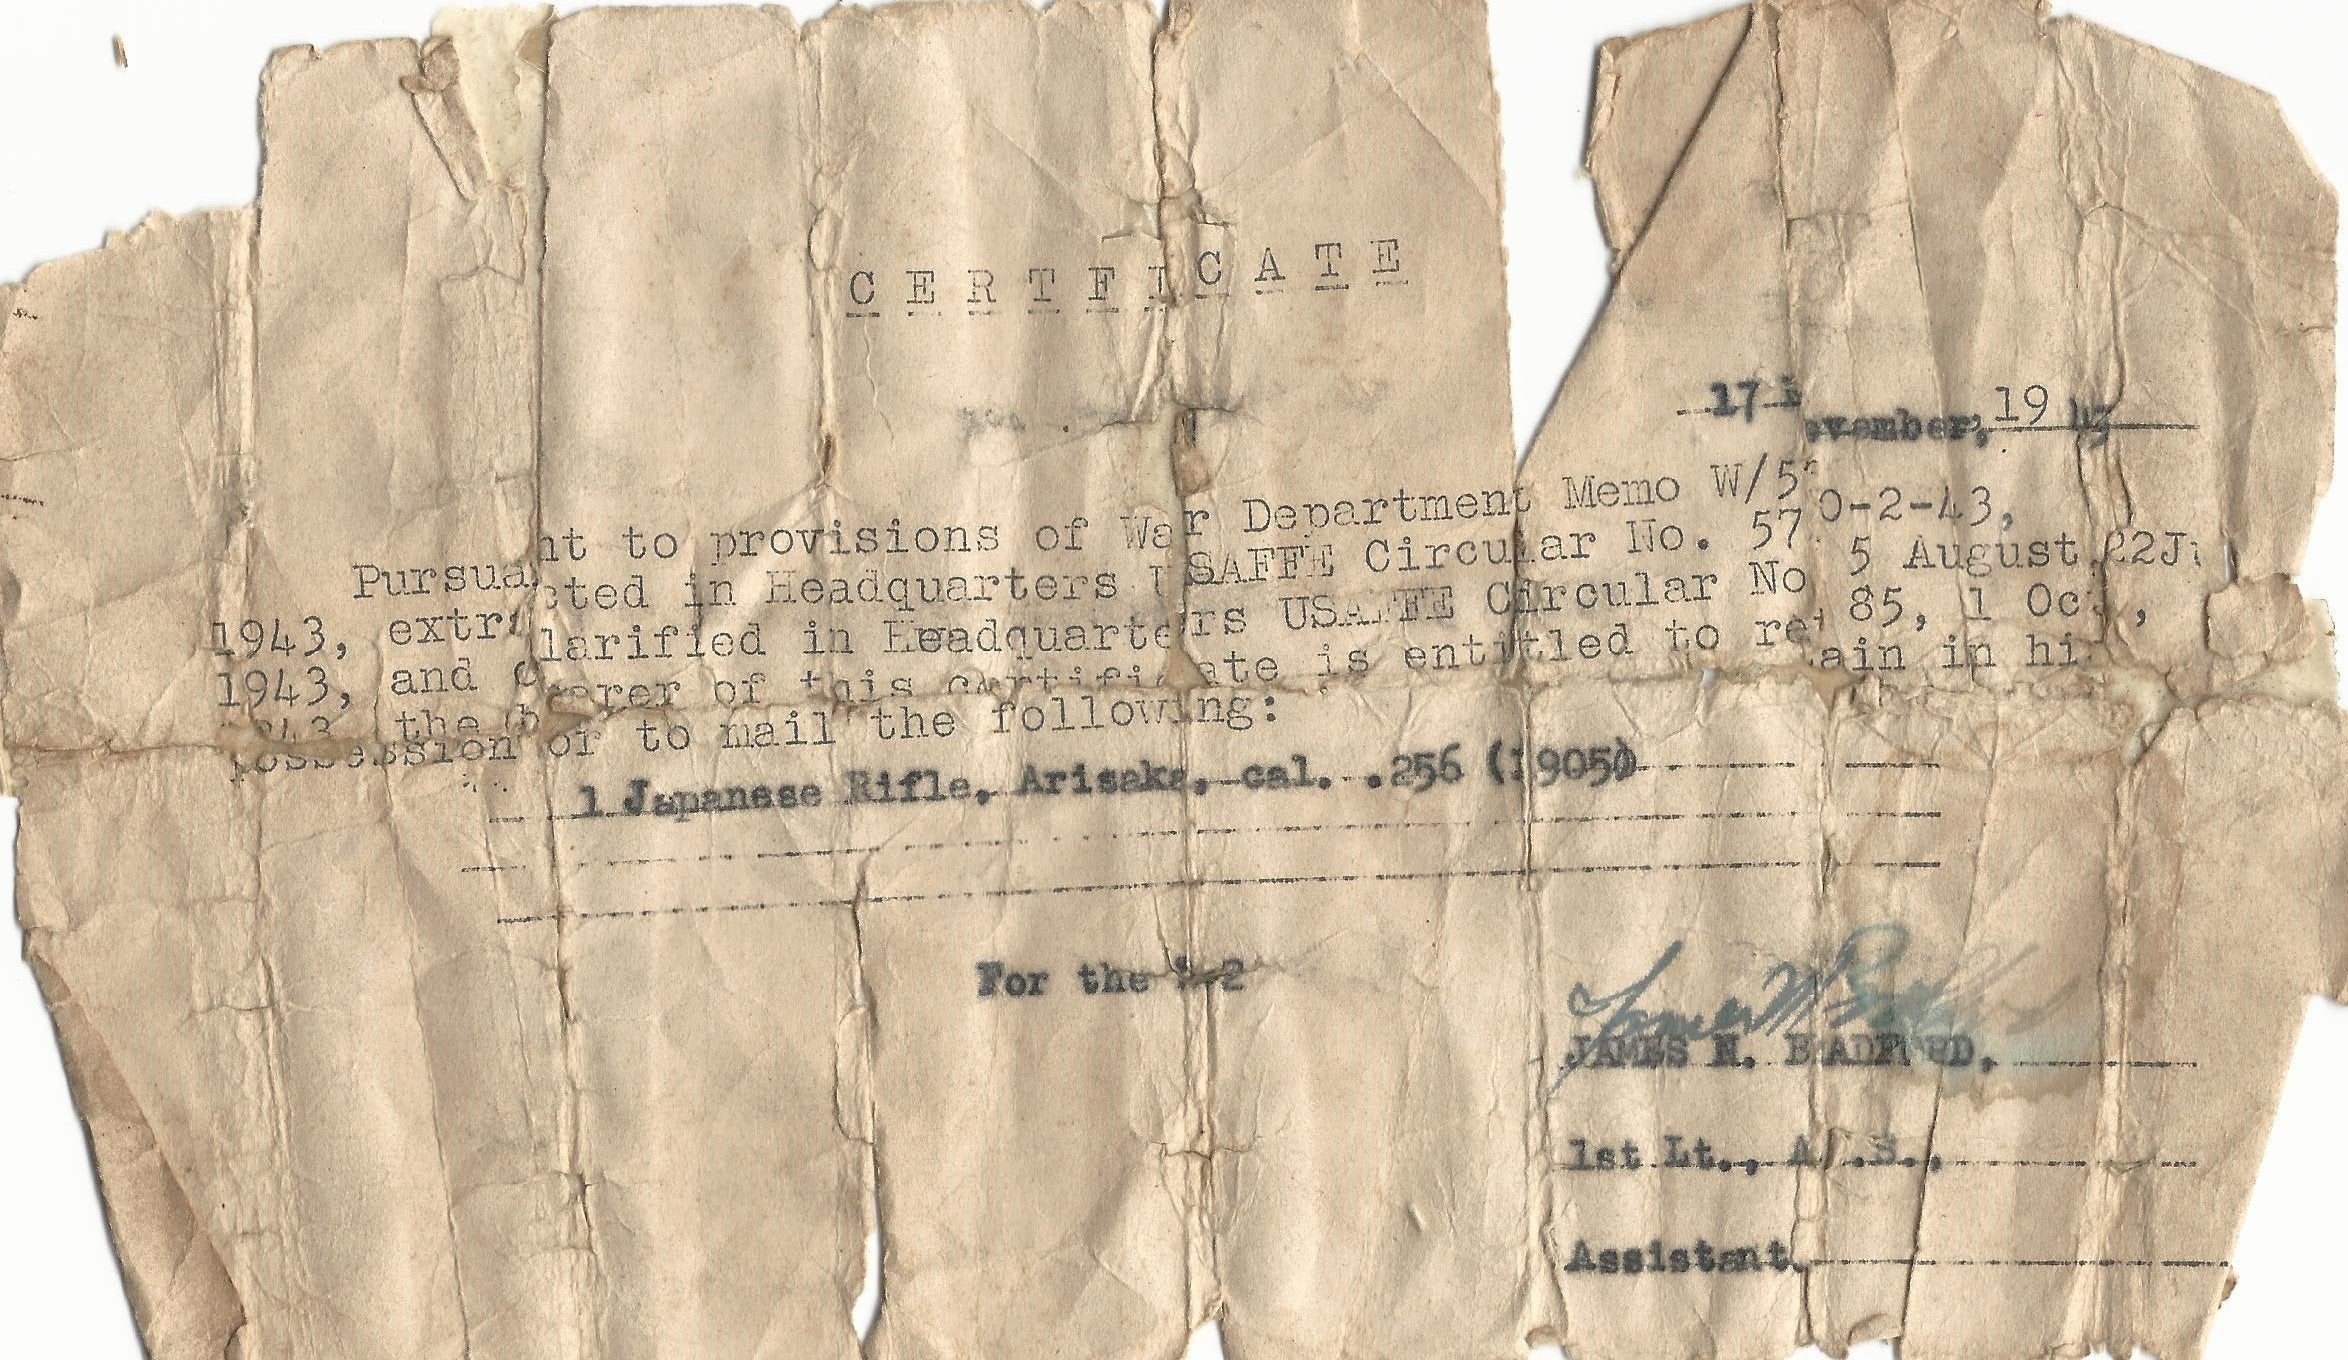 C E R T F I C A T E
17 November, 19 43
Pursuant to provisions of War Department Memo W/5 0-2-43, 22Ju
1943, extracted in Headquarters USAFFE Circular No. 57 5 August,
1943, and clarified in Headquarters USAFFE Circular No 85, 1 Oct,
1943 the bearer of this certificate is entitled to retain in hi
possession or to mail the following:
1 Japanese Rifle, Arisaka, cal. .256 (1905)
For the -2
James N Bradford
JAMES N. BRADFORD,
1st Lt., A .S.,
Assistant.